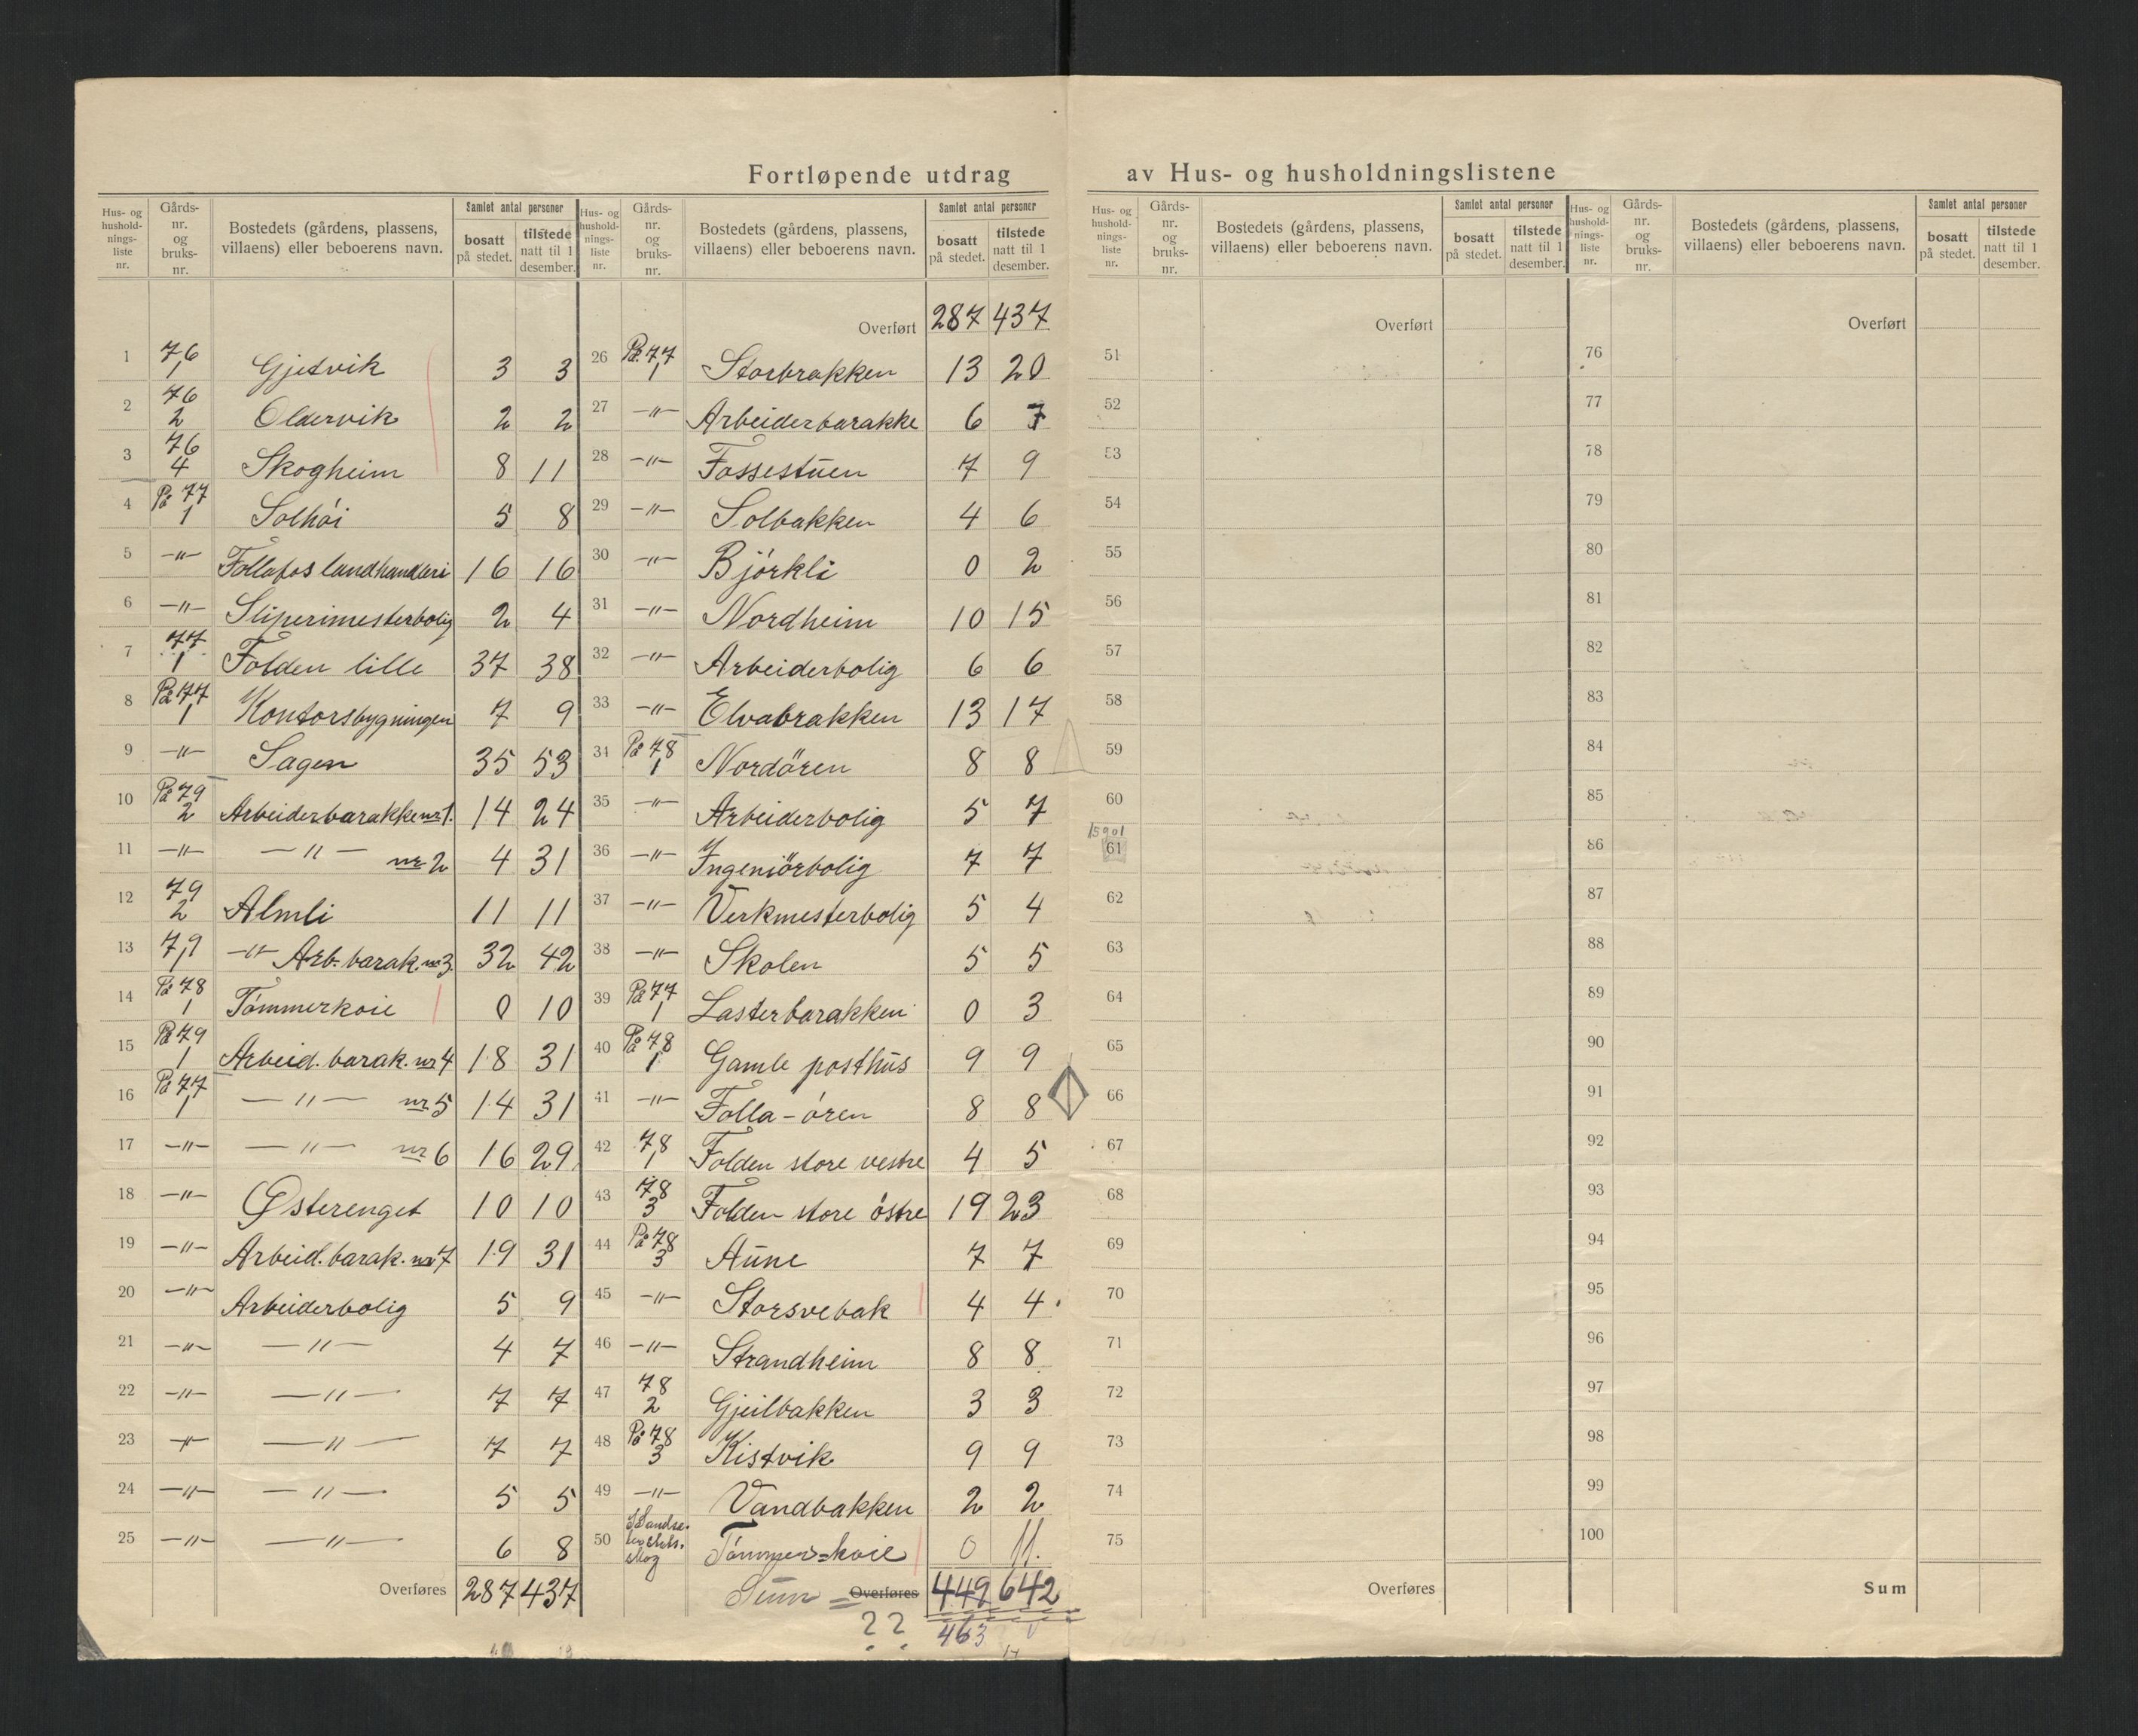 Fortløpende utdrag av Hus- og husholdningslistene
Hus- og hushold- nings- liste nr. | Gårds- nr. og bruks- nr. | Bostedets (gårdens, plassens, villaens) eller beboerens navn. | Samlet antal personer | bosatt på stedet. | tilstede natt til 1 desember.
1 76 1 Gjetvik 3 3
2 76 2 Oldervik 2 2
3 76 4 Skogheim 8 11
4 På 77 1 Solhöi 5 8
5 -"- Follafos landhandleri 16 16
6 -"- Sliperimesterbolig 2 4
7 77 1 Folden lille 37 38
8 På 77 1 Kontorsbygningen 7 9
9 -"- Sagen 35 53
10 På 79 2 Arbeiderbarakke nr 1. 14 24
11 -"- -"- nr 2 4 31
12 79 2 Almli 11 11
13 7,9 -"- Arb. barak. nr 3. 32 42
14 På 78 1 Tömmerkoie 0 10
15 På 79 1 Arbeid. barak. nr 4 18 31
16 På 77 1 -"- nr 5 14 31
17 -"- -"- nr 6 16 29
18 -"- Østerenget 10 10
19 -"- Arbeid. barak. nr 7 19 31
20 -"- Arbeiderbolig 5 9
21 -"- -"- 4 7
22 -"- -"- 7 7
23 -"- -"- 7 7
24 -"- -"- 5 5
25 -"- -"- 6 8
Overføres 287 437
Hus- og hushold- nings- liste nr. | Gårds- nr. og bruks- nr. | Bostedets (gårdens, plassens, villaens) eller beboerens navn. | Samlet antal personer | bosatt på stedet. | tilstede natt til 1 desember.
Overført 287 437
26 På 77 1 Storbrakken 13 20
27 -"- Arbeiderbarakke 6 7
28 -"- Fossestuen 7 9
29 -"- Solbakken 4 6
30 -"- Björkli 0 2
31 -"- Nordheim 10 15
32 -"- Arbeiderbolig 6 6
33 -"- Elvabrakken 13 17
34 På 78 1 Nordören 8 8
35 -"- Arbeiderbolig 5 7
36 -"- Ingeniörbolig 7 7
37 -"- Verkmesterbolig 5 4
38 -"- Skolen 5 5
39 På 77 1 Lasterbarakken 0 3
40 På 78 1 Gamle posthus 9 9
41 -"- Folla-ören 8 8
42 78 1 Folden store vestre 4 5
43 78 3 Folden store östre 19 23
44 På 78 3 Aune 7 7
45 -"- Storsvebak 4 4
46 -"- Strandheim 8 8
47 78 2 Gjeilbakken 3 3
48 På 78 3 Kistvik 9 9
49 -"- Vandbakken 2 2
50 skog Tömmer=koie 0 11.
Sum = Overføres 449 642
?? 463
Hus- og hushold- nings- liste nr. | Gårds- nr. og bruks- nr. | Bostedets (gårdens, plassens, villaens) eller beboerens navn. | Samlet antal personer | bosatt på stedet. | tilstede natt til 1 desember.
Overført
51
52
53
54
55
56
57
58
59
60
15901
61
62
63
64
65
66
67
68
69
70
71
72
73
74
75
Overføres
Hus- og hushold- nings- liste nr. | Gårds- nr. og bruks- nr. | Bostedets (gårdens, plassens, villaens) eller beboerens navn. | Samlet antal personer | bosatt på stedet. | tilstede natt til 1 desember.
Overført
76
77
78
79
80
81
82
83
84
85
86
87
88
89
90
91
92
93
94
95
96
97
98
99
100
Sum